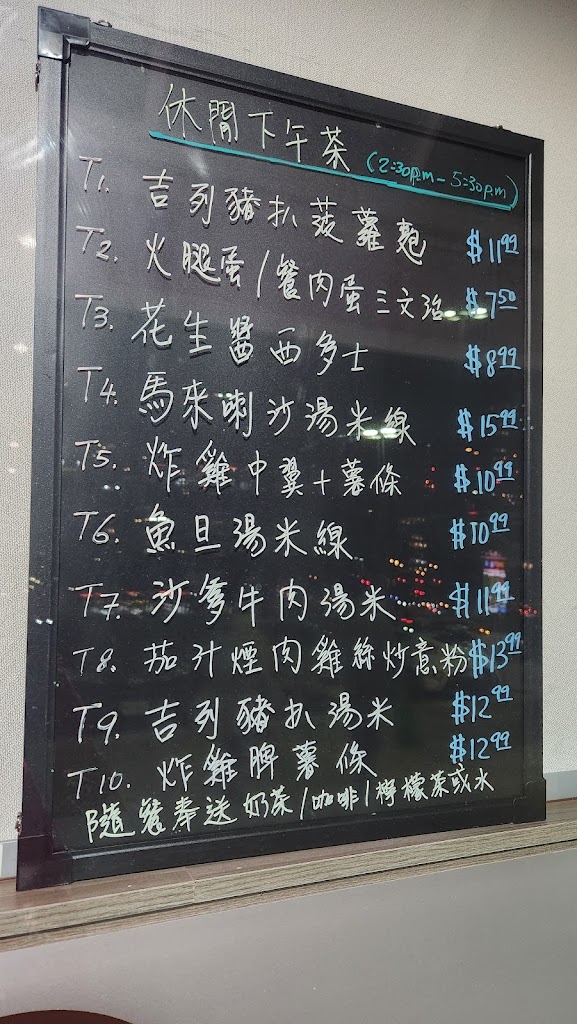 休閒下午茶 (2:30p.m - 5:30p.m)
T1. 吉列豬扒菠蘿飽 $11.99
T2. 火腿蛋/餐肉蛋三文治 $7.50
T3. 花生醬西多士 $8.99
T4. 馬來喇沙湯米線 $15.99
T5. 炸雞中翼+薯條 $10.99
T6. 魚旦湯米線 $10.99
T7. 沙爹牛肉湯米 $11.99
T8. 茄汁煙肉雞絲炒意粉 $13.99
T9. 吉列豬扒湯米 $12.99
T10. 炸雞脾薯條 $12.99
隨餐奉送奶茶/咖啡/檸檬茶或水